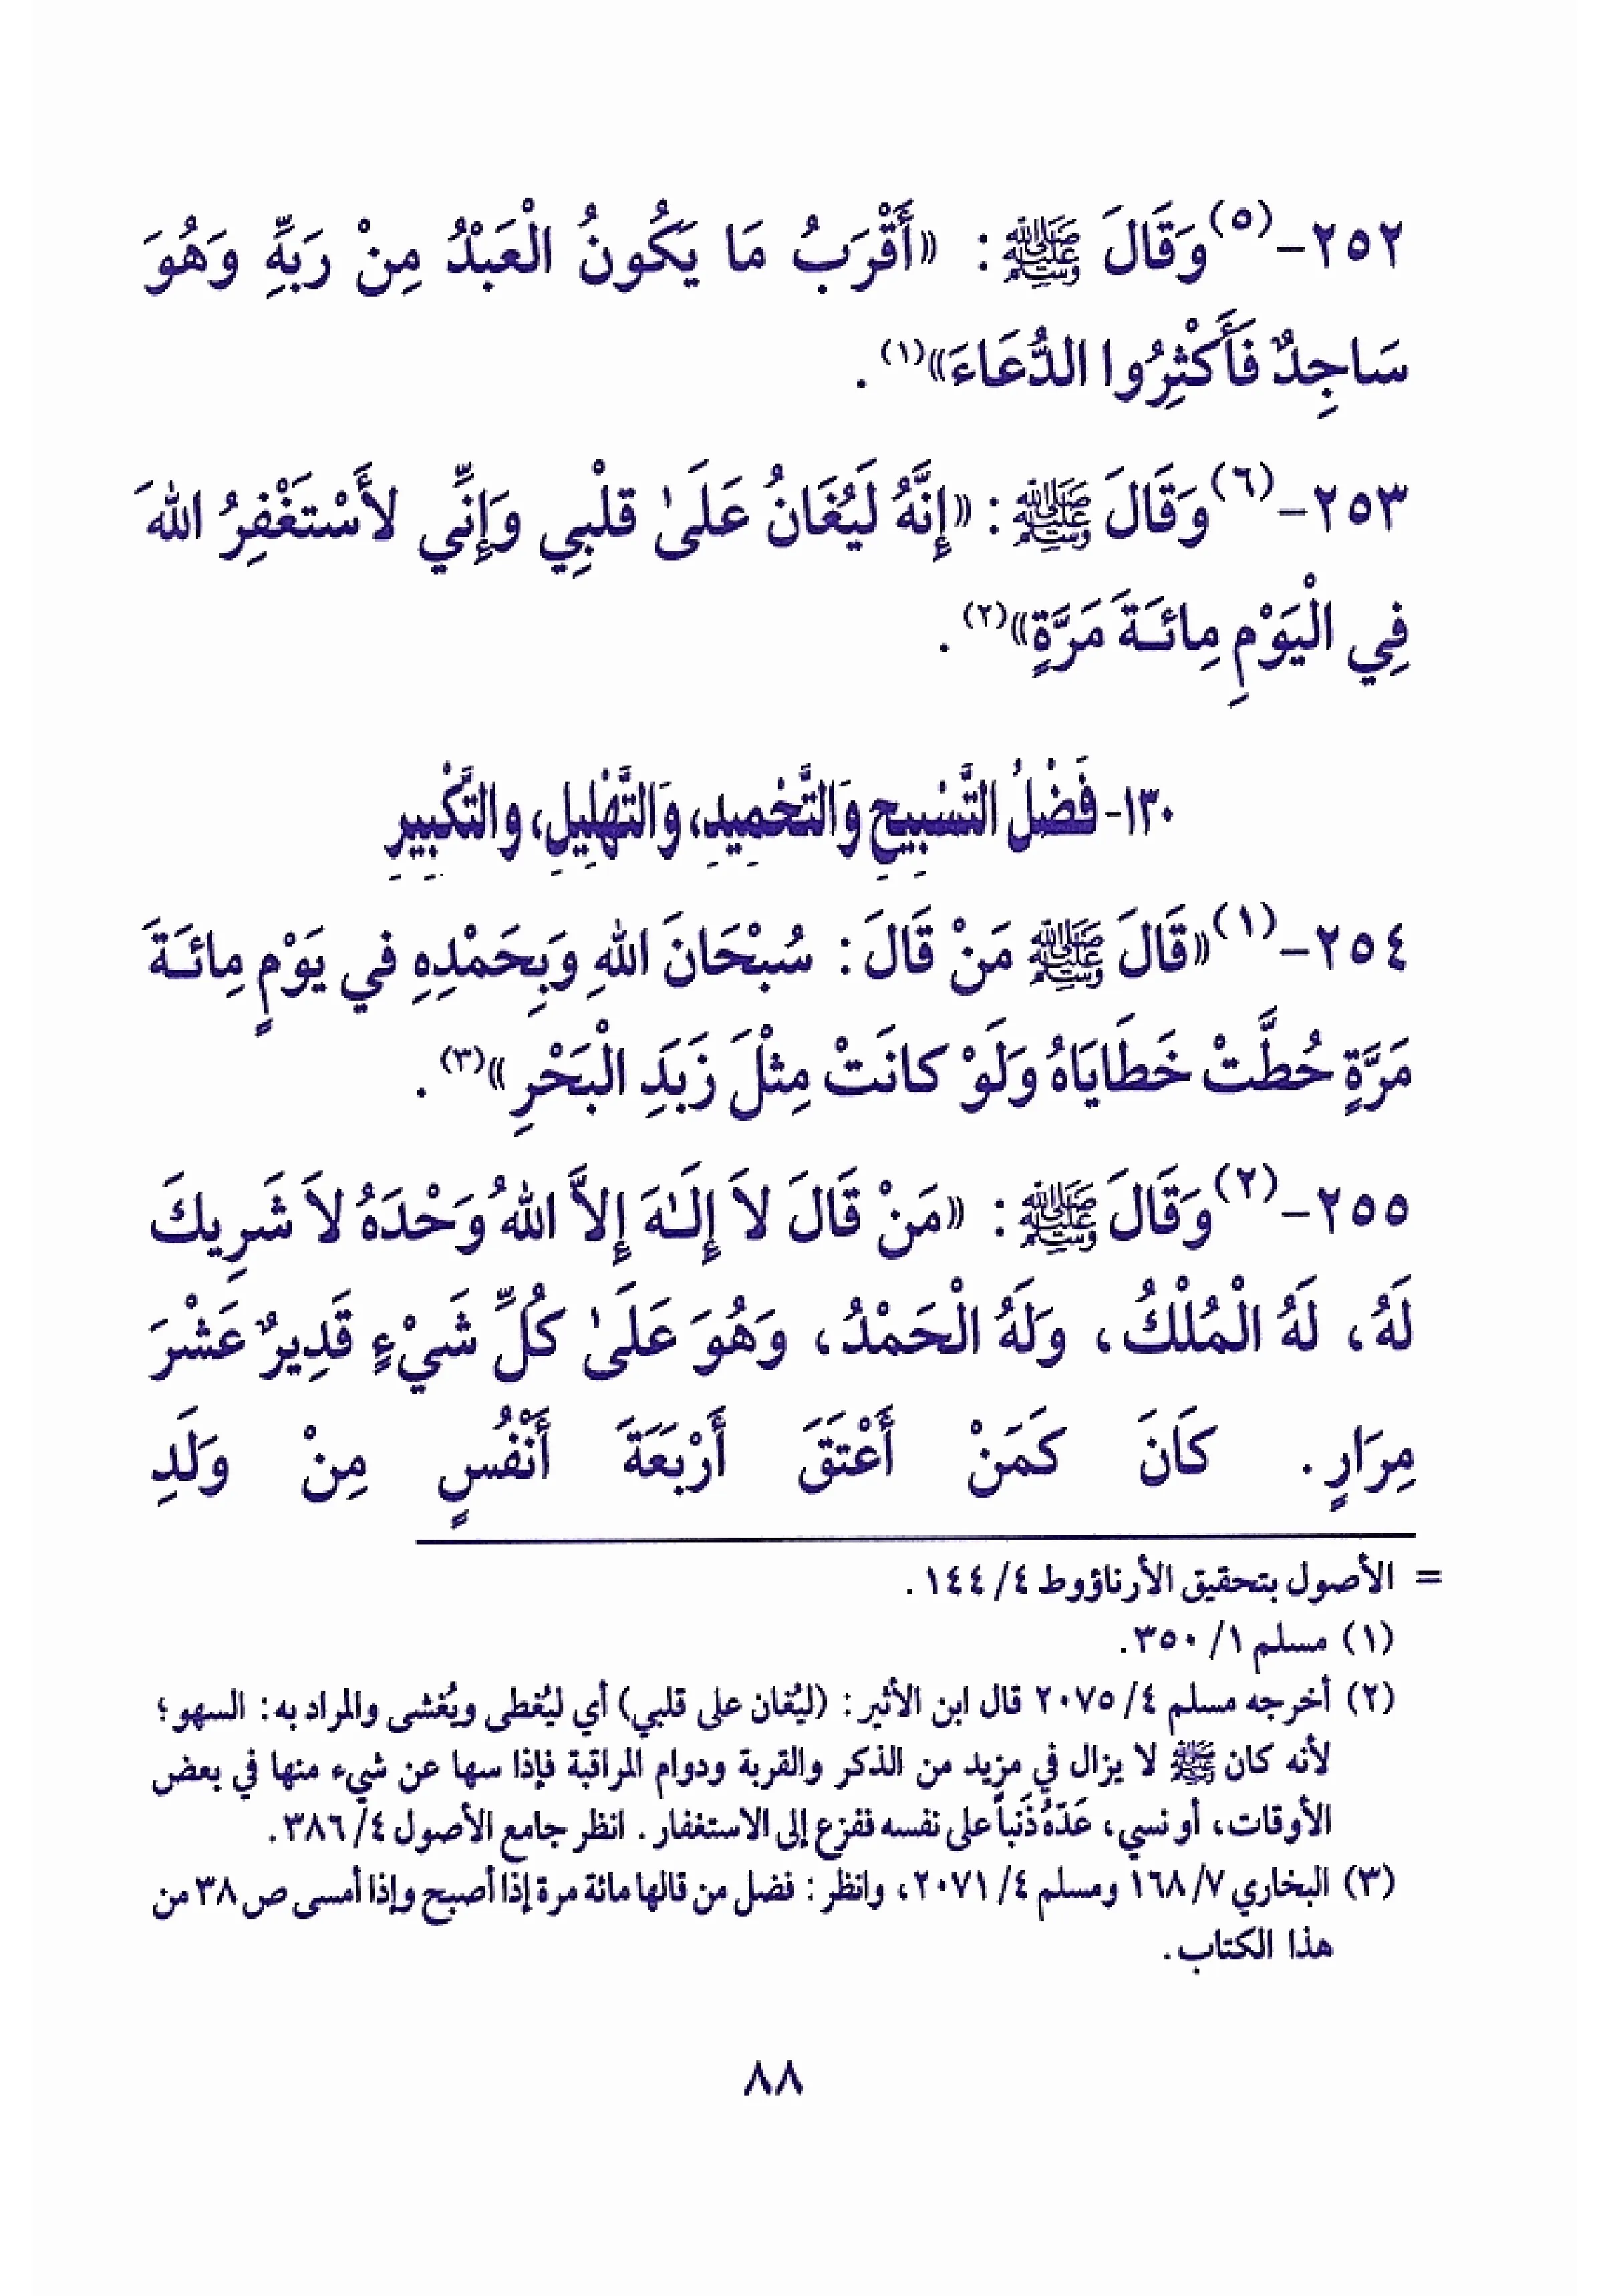 ٢٥٢-(٥)وَقَالَ ﷺ: «أَقْرَبُ مَا يَكُونُ الْعَبْدُ مِنْ رَبِّهِ وَهُوَ
سَاجِدٌ فَأَكْثِرُوا الدُّعَاءَ»(١).
٢٥٣-(٦)وَقَالَ ﷺ: «إِنَّهُ لَيُغَانُ عَلَىٰ قَلْبِي وَإِنِّي لأَسْتَغْفِرُ اللهَ
فِي الْيَوْمِ مِائَـةَ مَرَّةٍ»(٢).
١٣٠- فَضْلُ التَّسْبِيحِ وَالتَّحْمِيدِ، وَالتَّهْلِيلِ، والتَّكْبِيرِ
٢٥٤-(١)«قَالَ ﷺ مَنْ قَالَ: سُبْحَانَ اللهِ وَبِحَمْدِهِ في يَوْمٍ مِائَـةَ
مَرَّةٍ حُطَّتْ خَطَايَاهُ وَلَوْ كانَتْ مِثْلَ زَبَدِ الْبَحْرِ»(٣).
٢٥٥-(٢)وَقَالَ ﷺ: «مَنْ قَالَ لاَ إِلَـٰهَ إِلاَّ اللهُ وَحْدَهُ لاَ شَرِيكَ
لَهُ، لَهُ الْمُلْكُ، وَلَهُ الْحَمْدُ، وَهُوَ عَلَىٰ كُلِّ شَيْءٍ قَدِيرٌ عَشْرَ
مِرَارٍ. كَانَ كَمَنْ أَعْتَقَ أَرْبَعَةَ أَنْفُسٍ مِنْ وَلَدِ
= الأصول بتحقيق الأرناؤوط ٤/ ١٤٤.
(١) مسلم ١/ ٣٥٠.
(٢) أخرجه مسلم ٤/ ٢٠٧٥ قال ابن الأثير: (ليُغان على قلبي) أي ليُغطى ويُغشى والمراد به: السهو؛
لأنه كان ﷺ لا يزال في مزيد من الذكر والقربة ودوام المراقبة فإذا سها عن شيء منها في بعض
الأوقات، أو نسي، عَدّهُ ذَنباً على نفسه ففزع إلى الاستغفار. انظر جامع الأصول ٤/ ٣٨٦.
(٣) البخاري ٧/ ١٦٨ ومسلم ٤/ ٢٠٧١، وانظر: فضل من قالها مائة مرة إذا أصبح وإذا أمسى ص ٣٨ من
هذا الكتاب.
٨٨